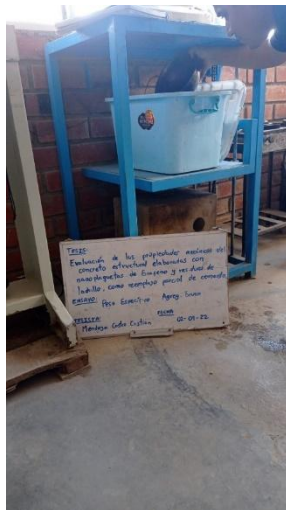 TESIS:
Evaluación de las propiedades mecánicas del
concreto estructural elaborados con
nanoplaquetas de Grafeno y residuos de
ladrillo, como reemplazo parcial de cemento
ENSAYO: Peso Específico Agreg. Grueso
TESISTA: FECHA
Mendoza Cristian 02-09-22